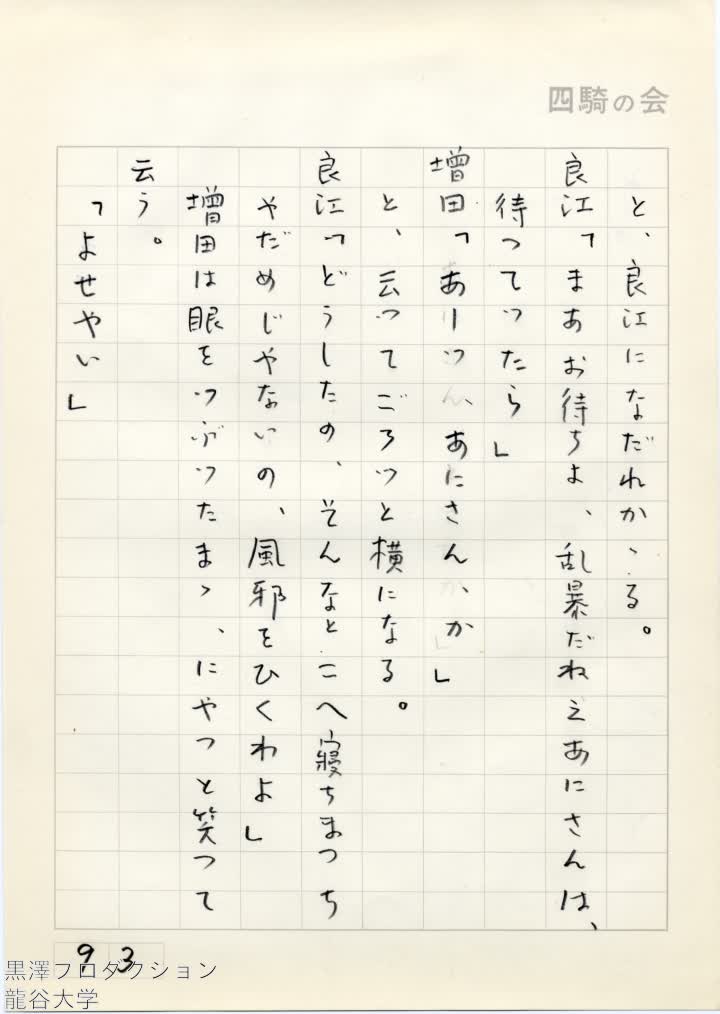 四騎の会
と、良江になだれかゝる。
良江「まあお待ちよ、乱暴だねえあにさんは、
待つてつたら」
増田「あーつ、あにさん、か」
と、云つてごろつと横になる。
良江「どうしたの、そんなとこへ寝ちまつち
やだめじやないの、風邪をひくわよ」
増田は眼をつぶつたまゝ、にやつと笑つて
云う。
「よせやい」
93
黒澤プロダクション
龍谷大学